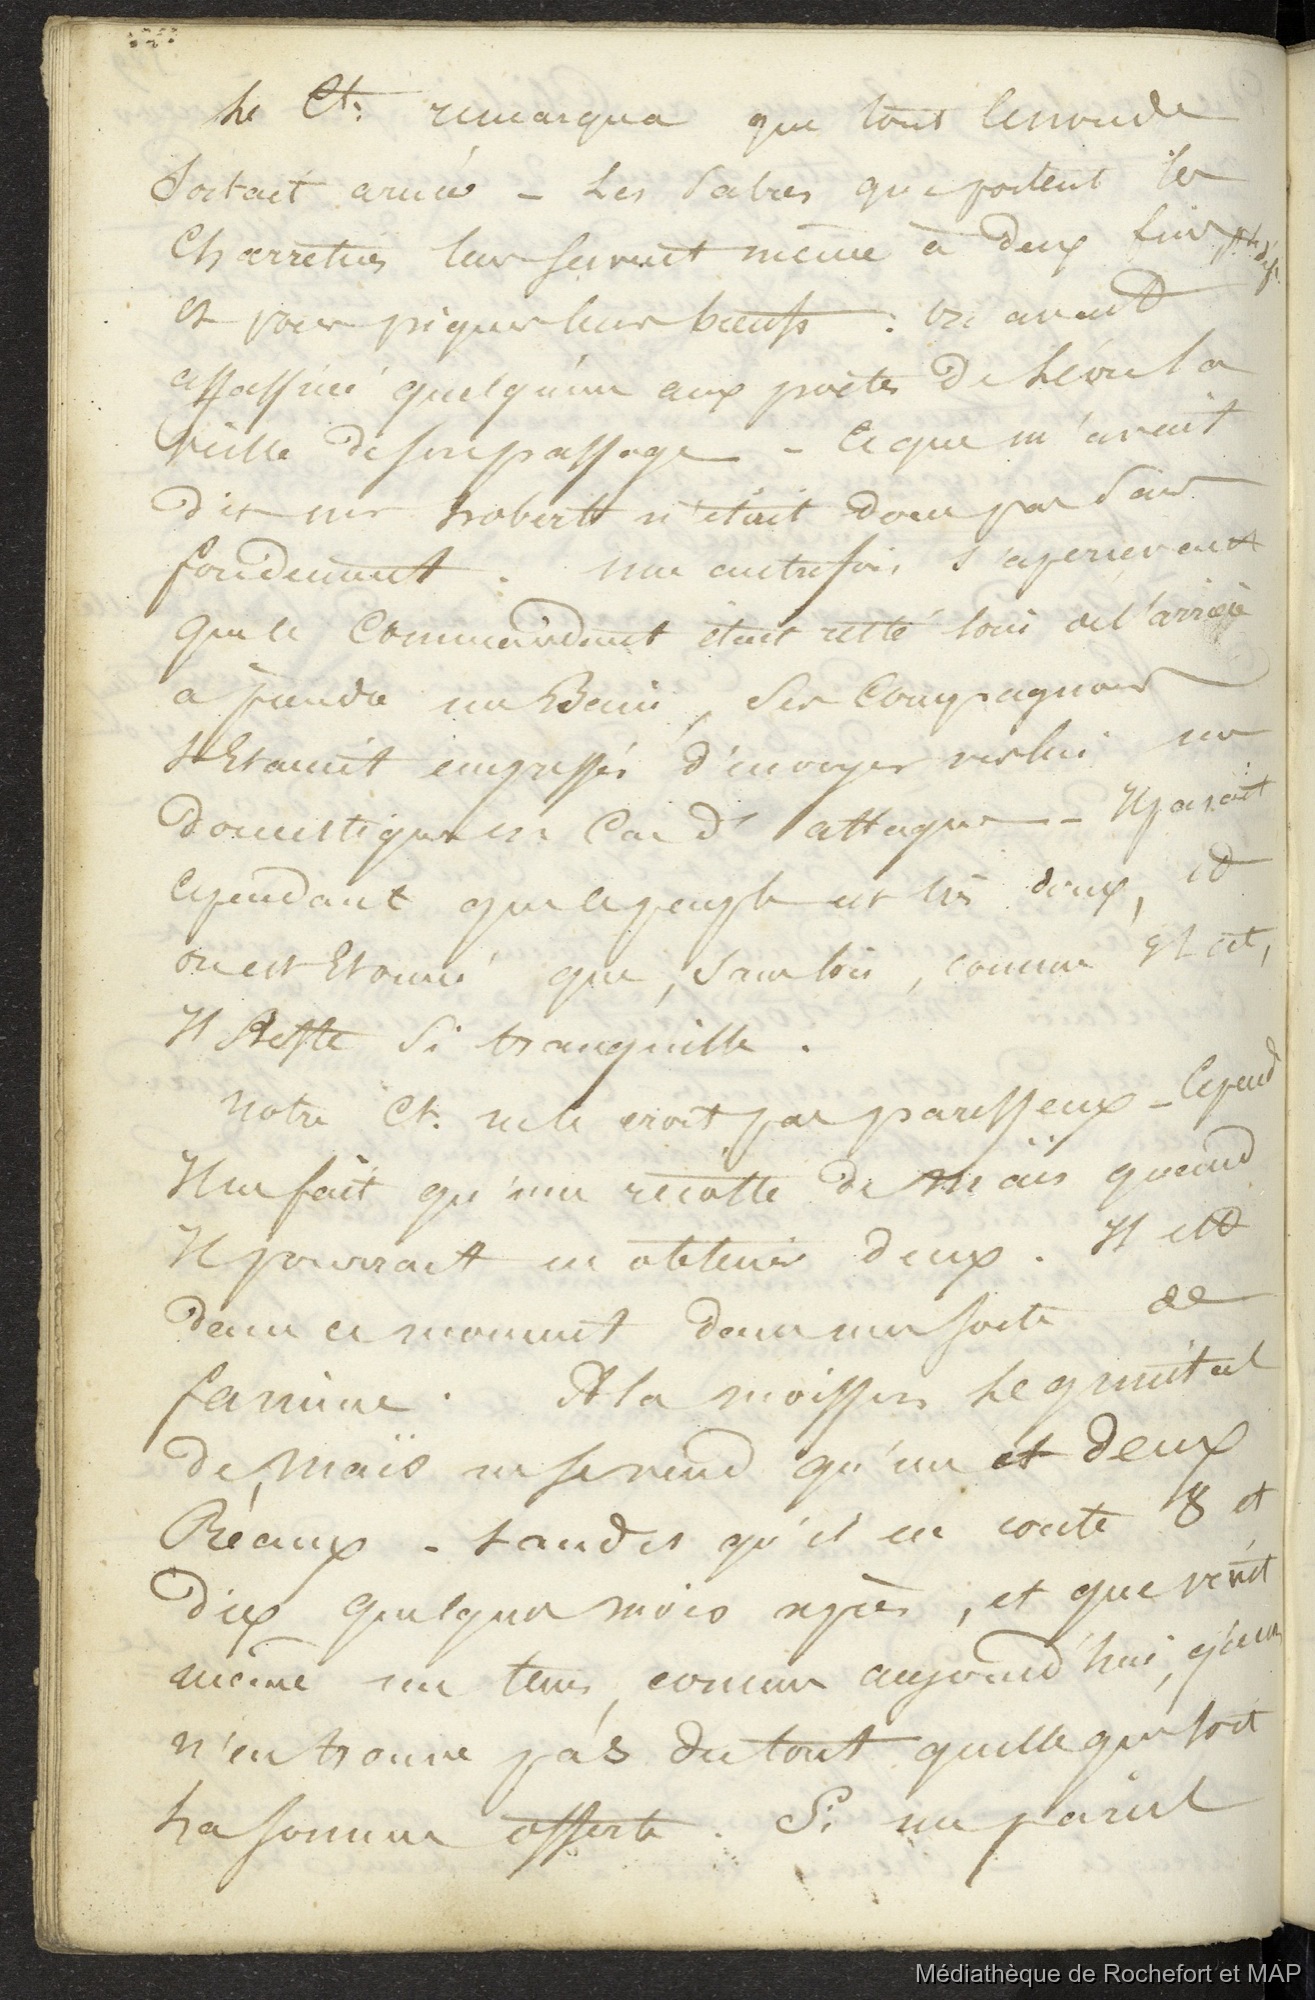 Le Ct. remarqua que tout lemonde
Sortait armé - Les Sabres que portent les
Charretiers leur servent même à deux fins pr. le déf.
et pour piquer leur bœufs . On avait
assassiné quelqu'un aux portes de Léon la
veille de son passage - Ceque m'avait
dit mr Robert n'était donc pas Sans
fondement . une autrefois, s'apercevant
que le Commandant était resté loin à l'arrière
à prendre un Bain, Ses Compagnons
s'Etaient empressés d'envoyer vers lui un
domestique en Cas d'attaque - Il parait
cependant que le peuple est très doux, et
on est Etonné que, Sans lois, comme Il est,
Il Reste Si tranquille .
Notre Ct. ne le croit pas paresseux - Cepend
Il ne fait qu'une récolte de Maïs quand
Il pourrait en obtenir deux . Il est
dans ce moment dans une sorte de
famine . A la moisson Le quintal
de Maïs ne se vend qu'un et deux
Réaux - tandis qu'il en coute 8 et
dix quelques mois après, et que vient
même un tems, comme aujourd'hui, qu'on
n'en trouve pas du tout quelle que soit
La somme offerte . Si un pareil
Médiathèque de Rochefort et MAP